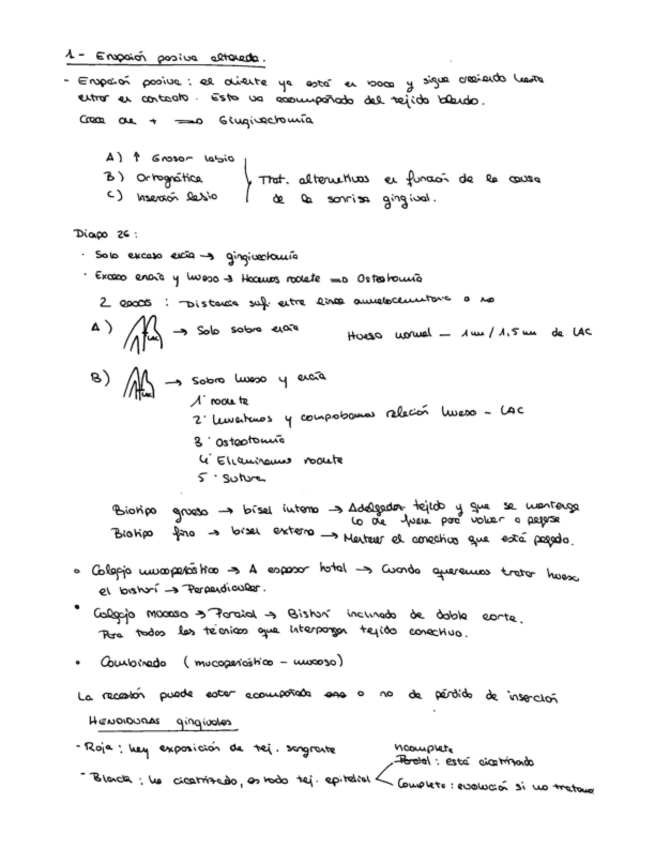 1 - Erupción pasiva alterada.
- Erupción pasiva: el diente ya está en boca y sigue creciendo hasta
entrar en contacto. Esto va acompañado del tejido blando.
Crece de + ⇒ Gingivectomía
A) ↑ Grosor labio
B) Ortognática
C) Inserción labio
Trat. alternativos en función de la causa
de la sonrisa gingival.
Diapo 26:
· Solo exceso encía → gingivectomía
· Exceso encía y hueso → Hacemos rodete ⇒ Osteotomía
2 casos: Distancia suf. entre línea amelocementaria o no
A) → Solo sobra encía
Hueso normal - 1mm/1,5mm de LAC
B) → Sobra hueso y encía
1· rodete
2· Levantamos y comprobamos relación hueso - LAC
3· Osteotomía
4· Eliminamos rodete
5· Sutura
Biotipo grueso → bisel interno → Adelgazar tejido y que se mantenga
lo de fuera para volver a pegarse
Biotipo fino → bisel externo → Mantener el conectivo que está pegado.
• Colgajo mucoperióstico → A espesor total → Cuando queremos tratar hueso
el bisturí → Perpendicular.
• Colgajo mucoso → Parcial → Bisturí inclinado de doble corte.
Para todas las técnicas que interpongan tejido conectivo.
• Combinado (mucoperióstico - mucoso)
La recesión puede estar acompañada o no de pérdida de inserción
HENDIDURAS gingivales
- Roja: hay exposición de tej. sangrante
- Blanca: ha cicatrizado, es todo tej. epitelial
Incompleta
Parcial: está cicatrizado
Completa: evolución si no tratamos